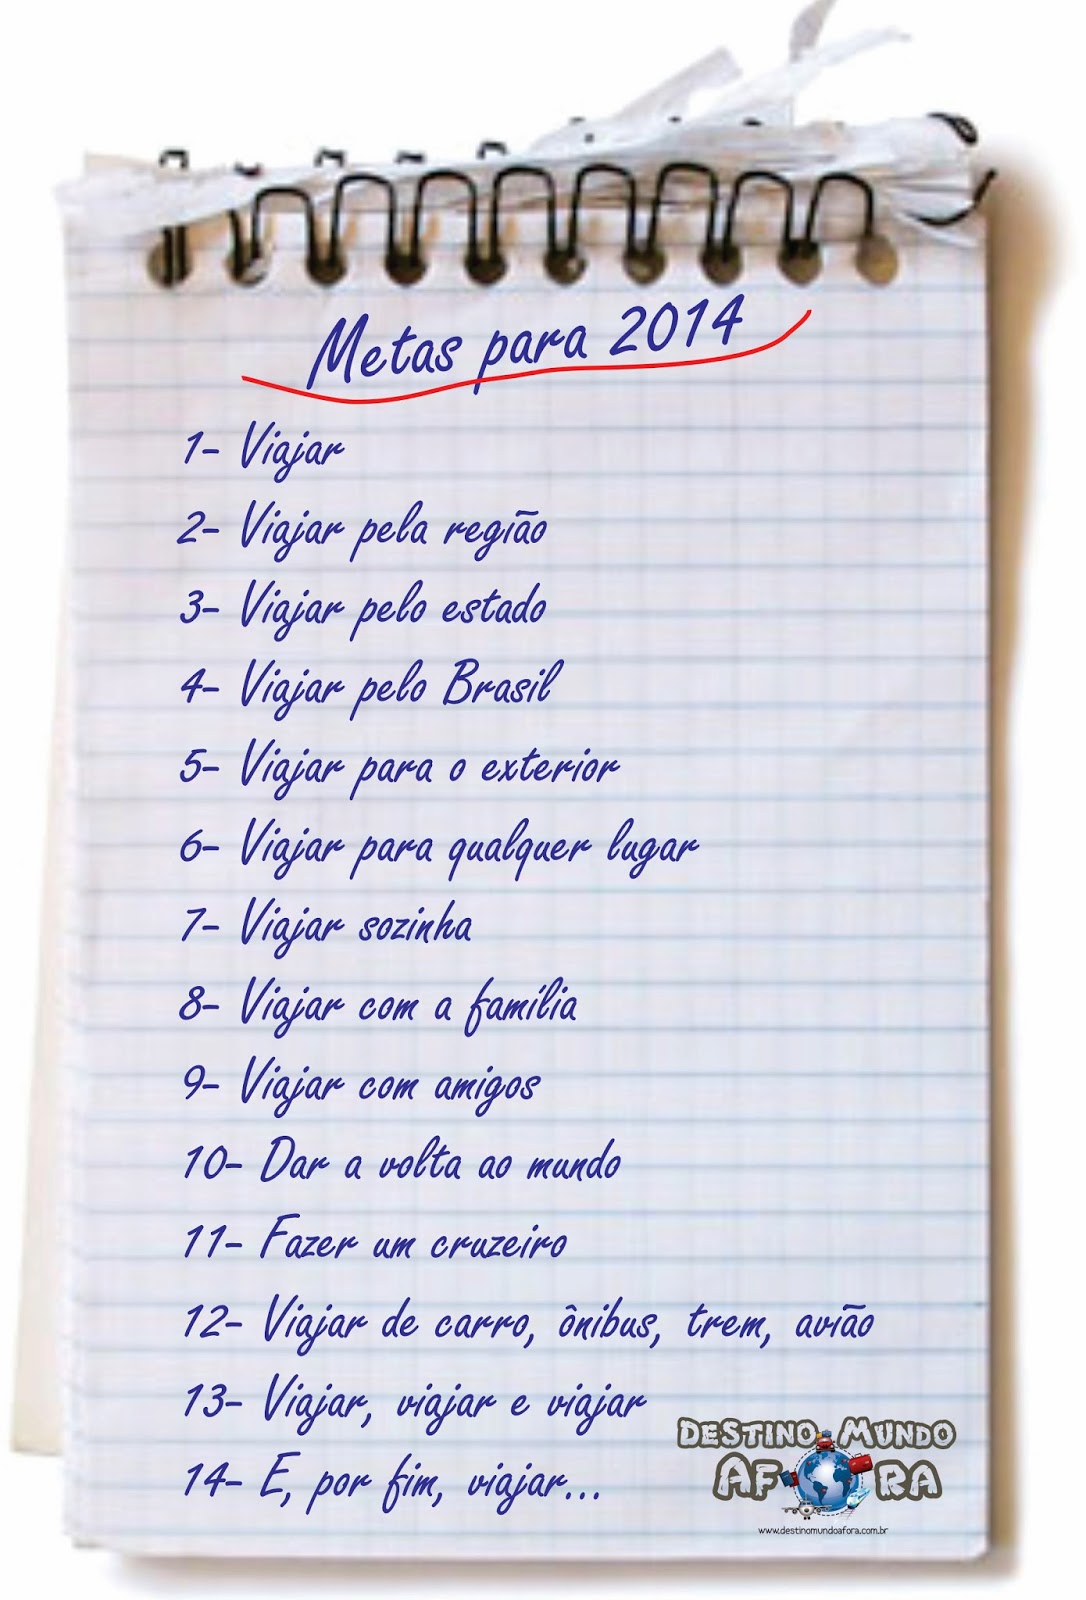 Metas para 2014
1- Viajar
2- Viajar pela região
3- Viajar pelo estado
4- Viajar pelo Brasil
5- Viajar para o exterior
6- Viajar para qualquer lugar
7- Viajar sozinha
8- Viajar com a família
9- Viajar com amigos
10- Dar a volta ao mundo
11- Fazer um cruzeiro
12- Viajar de carro, ônibus, trem, avião
13- Viajar, viajar e viajar
14- E, por fim, viajar...
DESTINO MUNDO
AFORA
www.destinomundoafora.com.br